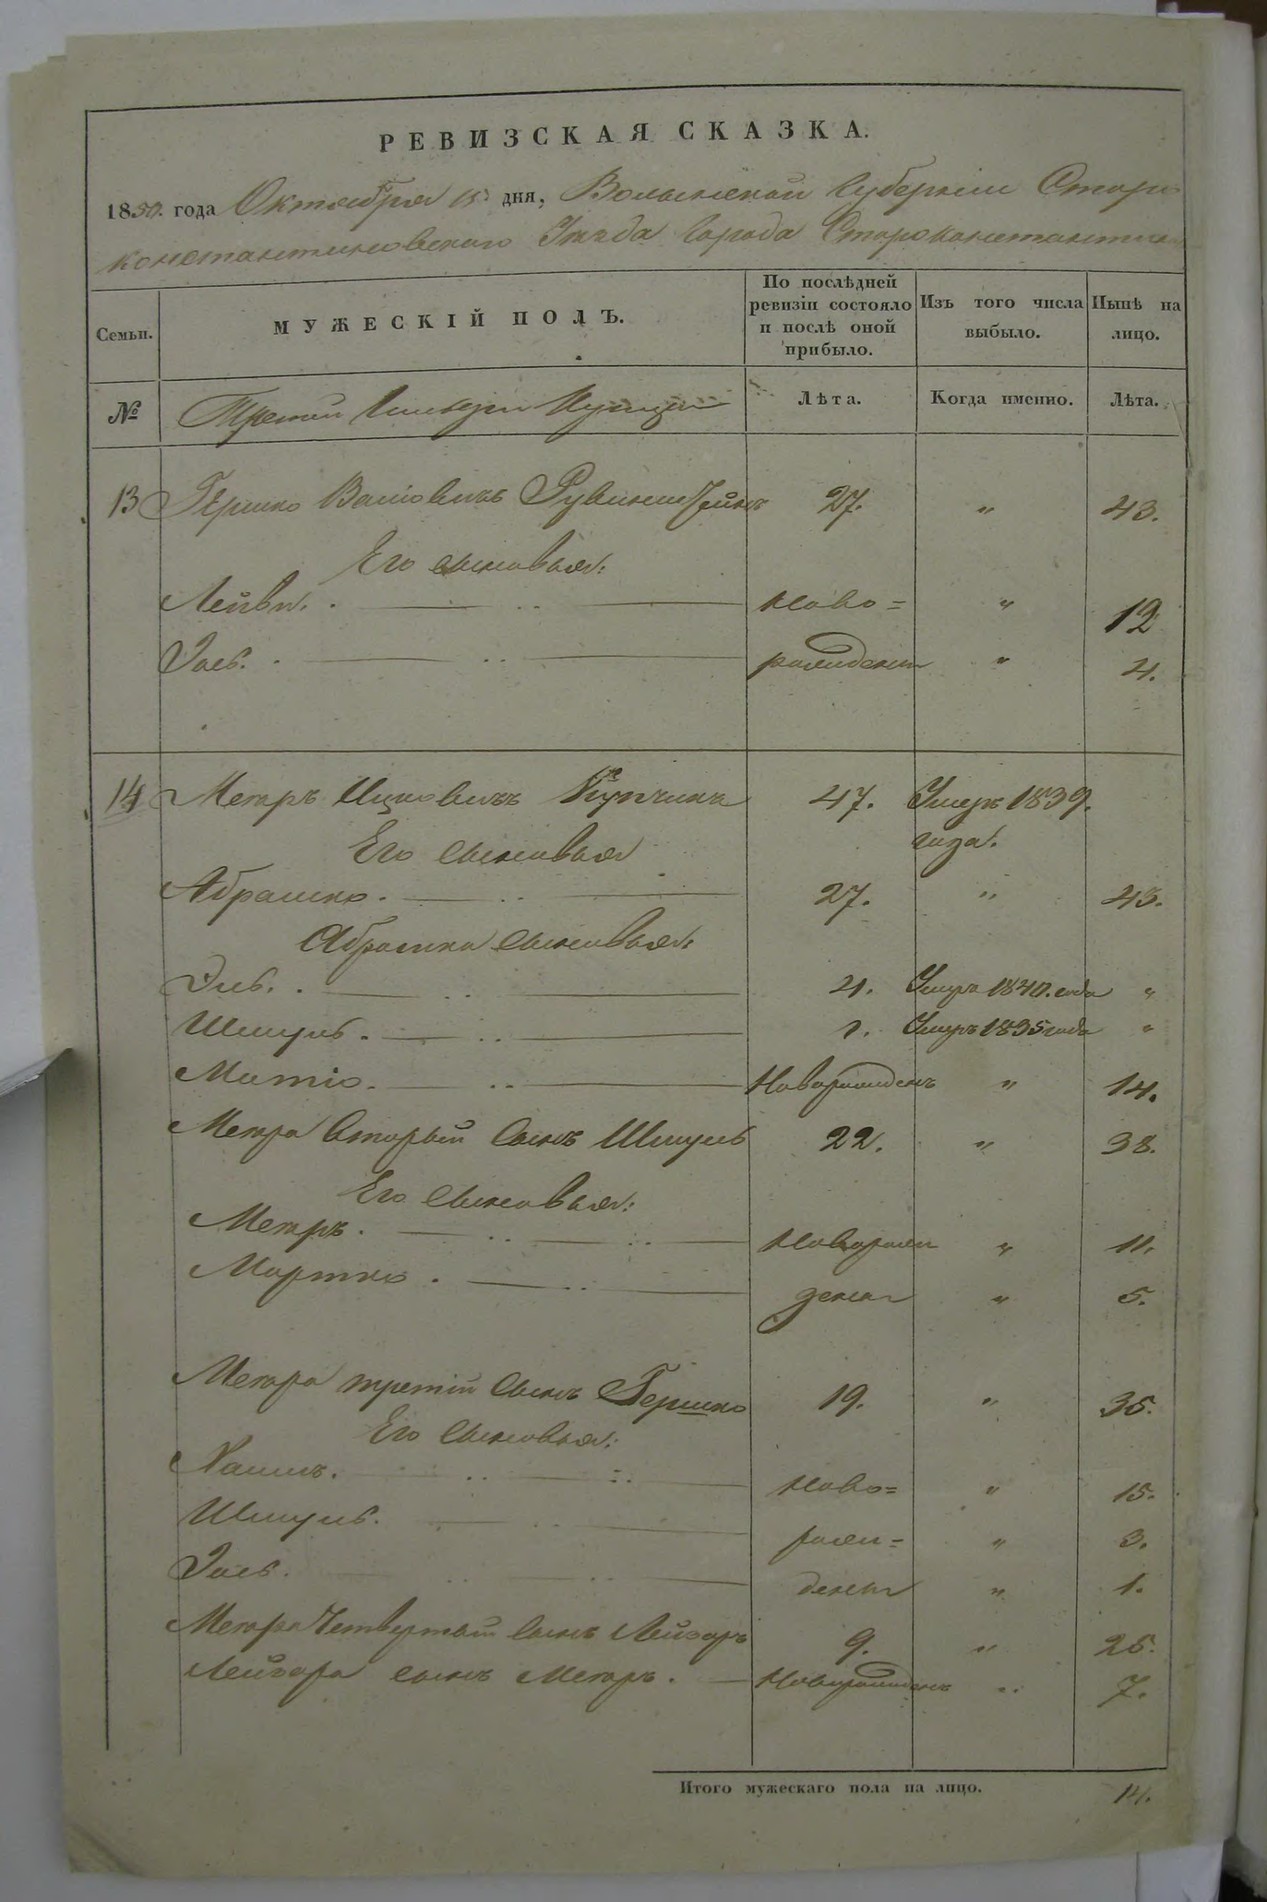 РЕВИЗСКАЯ СКАЗКА.
1850. года Октября 15 дня, Волынской Губерніи Старо
константиновского Уѣзда Города Староконстантин
Семьи.
МУЖЕСКІЙ ПОЛЪ.
По послѣдней ревизіи состояло и послѣ оной прибыло.
Изъ того числа выбыло.
Нынѣ на лицо.
№
Третей Гильдіи Купцы
Лѣта.
Когда именно.
Лѣта.
13 Гершко Рувинштейнъ 27. " 43.
Его сыновья:
Лейви. ново= " 12
рожденн " 4.
14 Меиръ Ицковичъ Купчикъ 47. Умеръ 1839.
года.
Его сыновья
Абрамко. 27. " 43.
Абрамка сыновья:
Эль. 4. Умеръ 1840. года "
Шмуль. 1. Умеръ 1835 года "
Матіо. Новорожденъ " 14.
Меира Вторый сынъ Шмуль 22. " 38.
Его сыновья:
Меиръ. Каворож " 11.
Мортко. дены " 5.
Меира третій сынъ Гершко 19. " 35.
Его сыновья:
Хаимъ. ново= " 15.
Шмуль. рож= " 3.
дены " 1.
Меира Четвертый сынъ Лейзоръ 9. " 25.
Лейзора сынъ Меиръ. Новорожденъ " 7.
Итого мужескаго пола на лицо. 14.